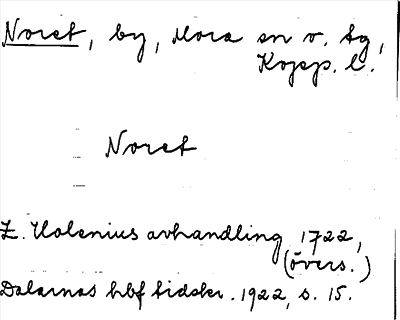 Noret, by, Mora sn o. tg,
Kopp. l.
Noret
Z. Holenius avhandling 1722,
(övers.)
Dalarnas hbf tidskr. 1922, s. 15.